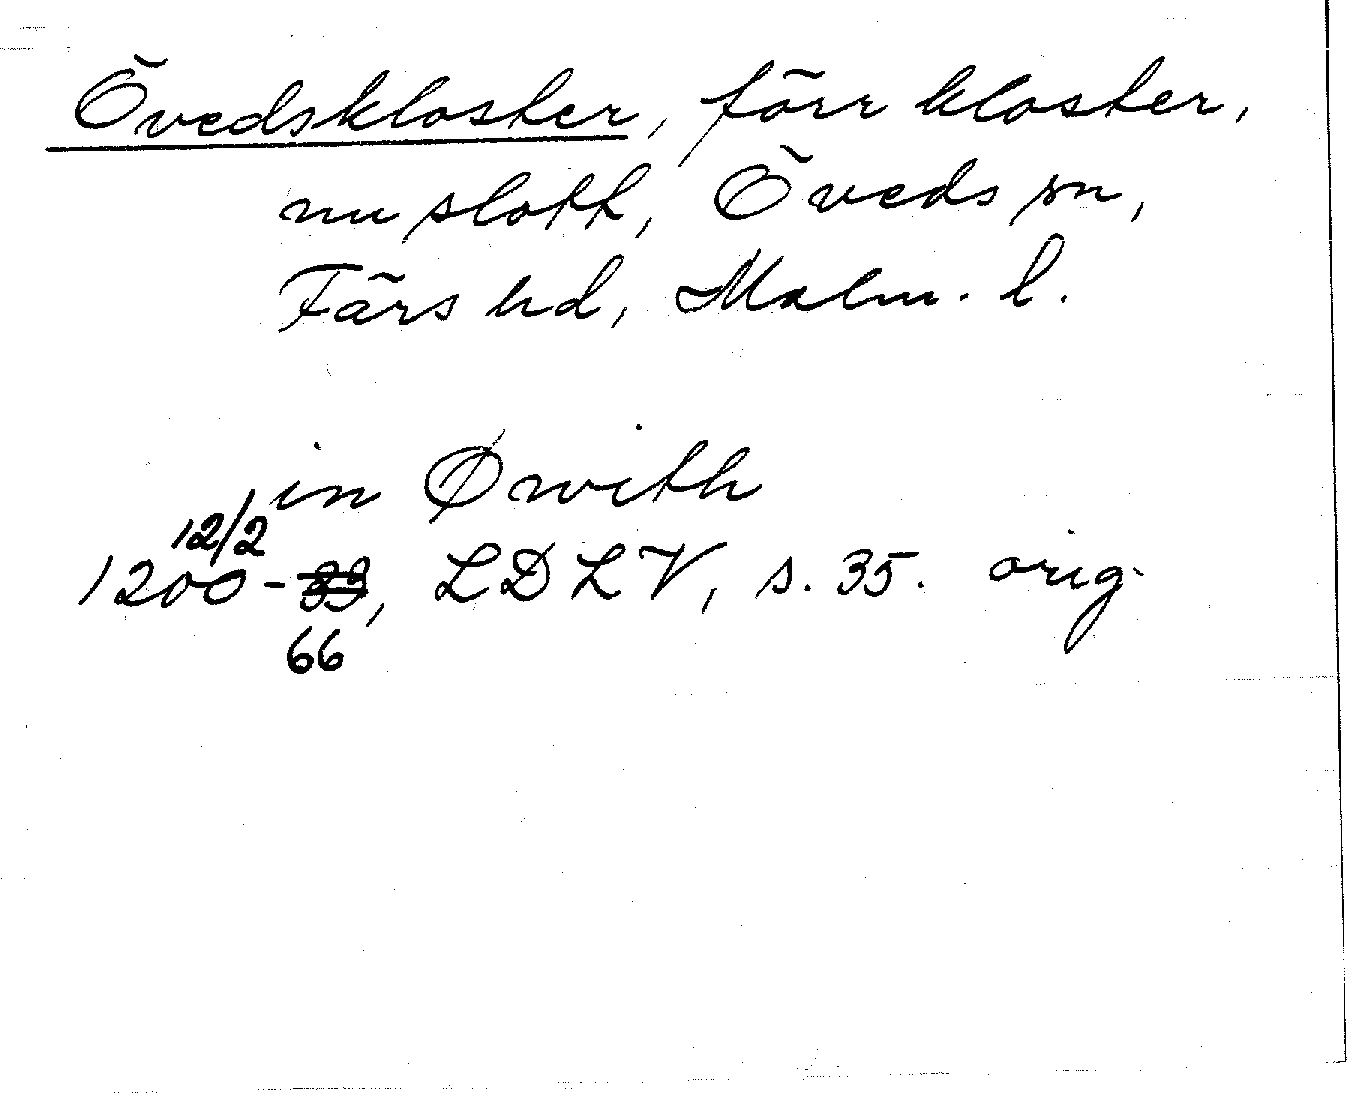 Övedskloster, förr kloster,
nu slott, Öveds sn,
Färs hd, Malm. l.
in Øwith
12/2
1200-33, LDLV, s. 35. orig.
66